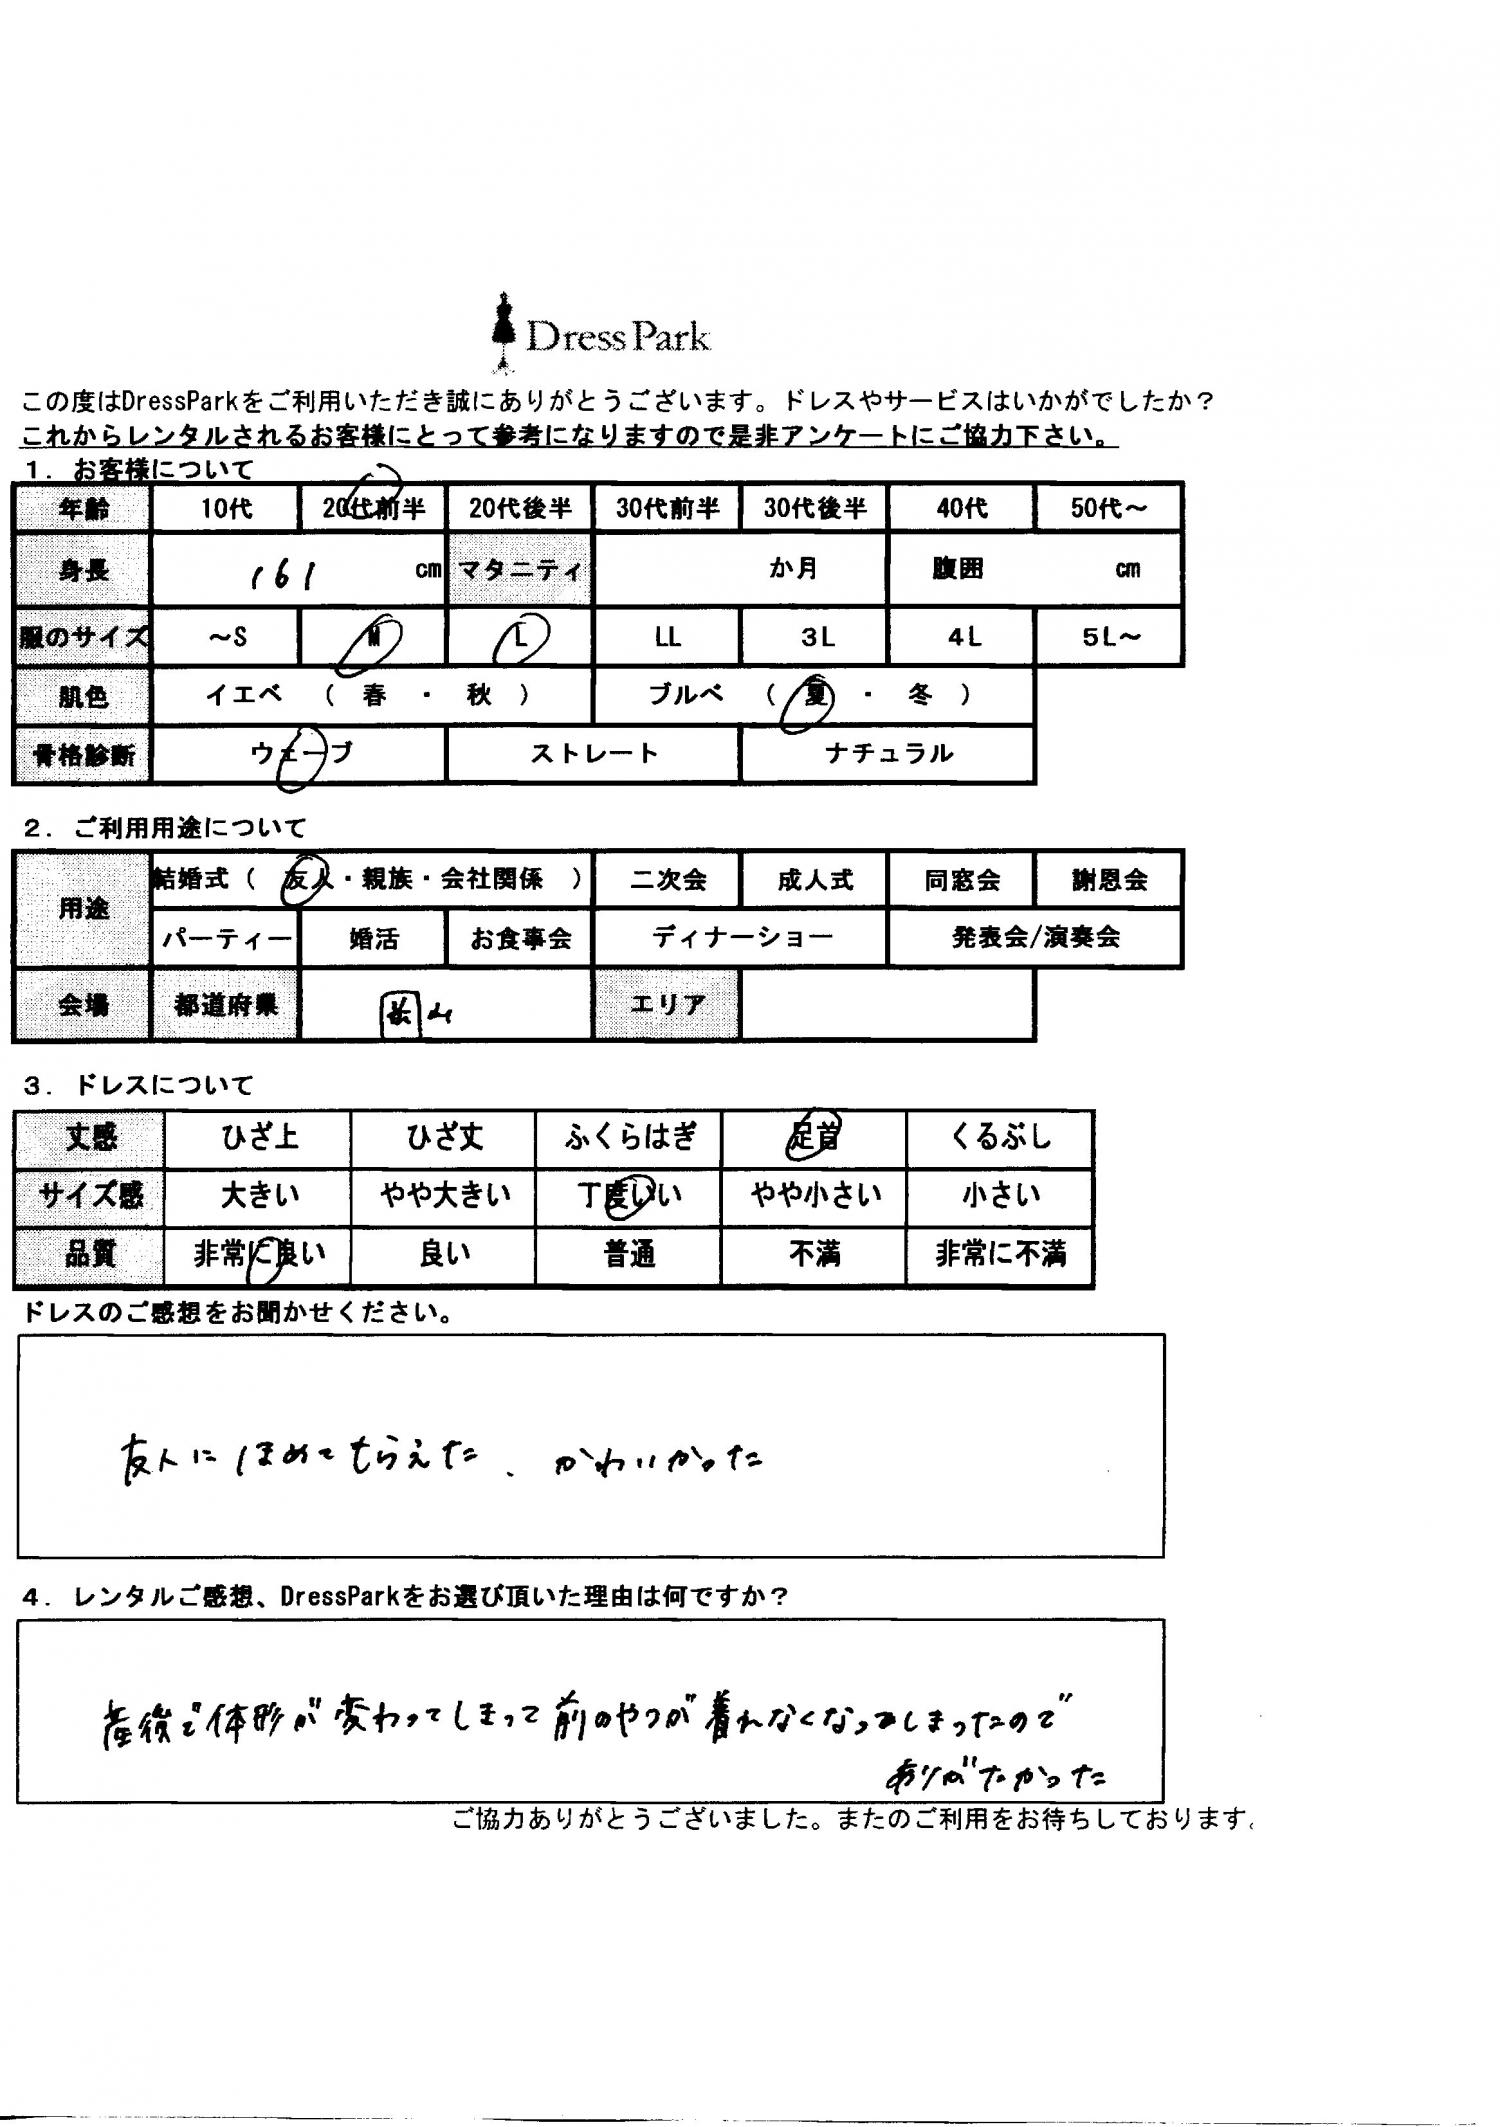 DressPark
この度はDressParkをご利用いただき誠にありがとうございます。ドレスやサービスはいかがでしたか？
これからレンタルされるお客様にとって参考になりますので是非アンケートにご協力下さい。
１．お客様について
年齢 10代 20代前半 20代後半 30代前半 30代後半 40代 50代～
身長 161 cm マタニティ か月 腹囲 cm
服のサイズ ～S M L LL 3L 4L 5L～
肌色 イエベ （ 春 ・ 秋 ） ブルベ （ 夏 ・ 冬 ）
骨格診断 ウェーブ ストレート ナチュラル
２．ご利用用途について
用途 結婚式（ 友人・親族・会社関係 ） 二次会 成人式 同窓会 謝恩会
パーティー 婚活 お食事会 ディナーショー 発表会/演奏会
会場 都道府県 山 エリア
３．ドレスについて
丈感 ひざ上 ひざ丈 ふくらはぎ 足首 くるぶし
サイズ感 大きい やや大きい 丁度いい やや小さい 小さい
品質 非常に良い 良い 普通 不満 非常に不満
ドレスのご感想をお聞かせください。
友人にほめてもらえた、かわいかった
４．レンタルご感想、DressParkをお選び頂いた理由は何ですか？
産後で体形が変わってしまって前のやつが着れなくなってしまったので
ありがたかった
ご協力ありがとうございました。またのご利用をお待ちしております。